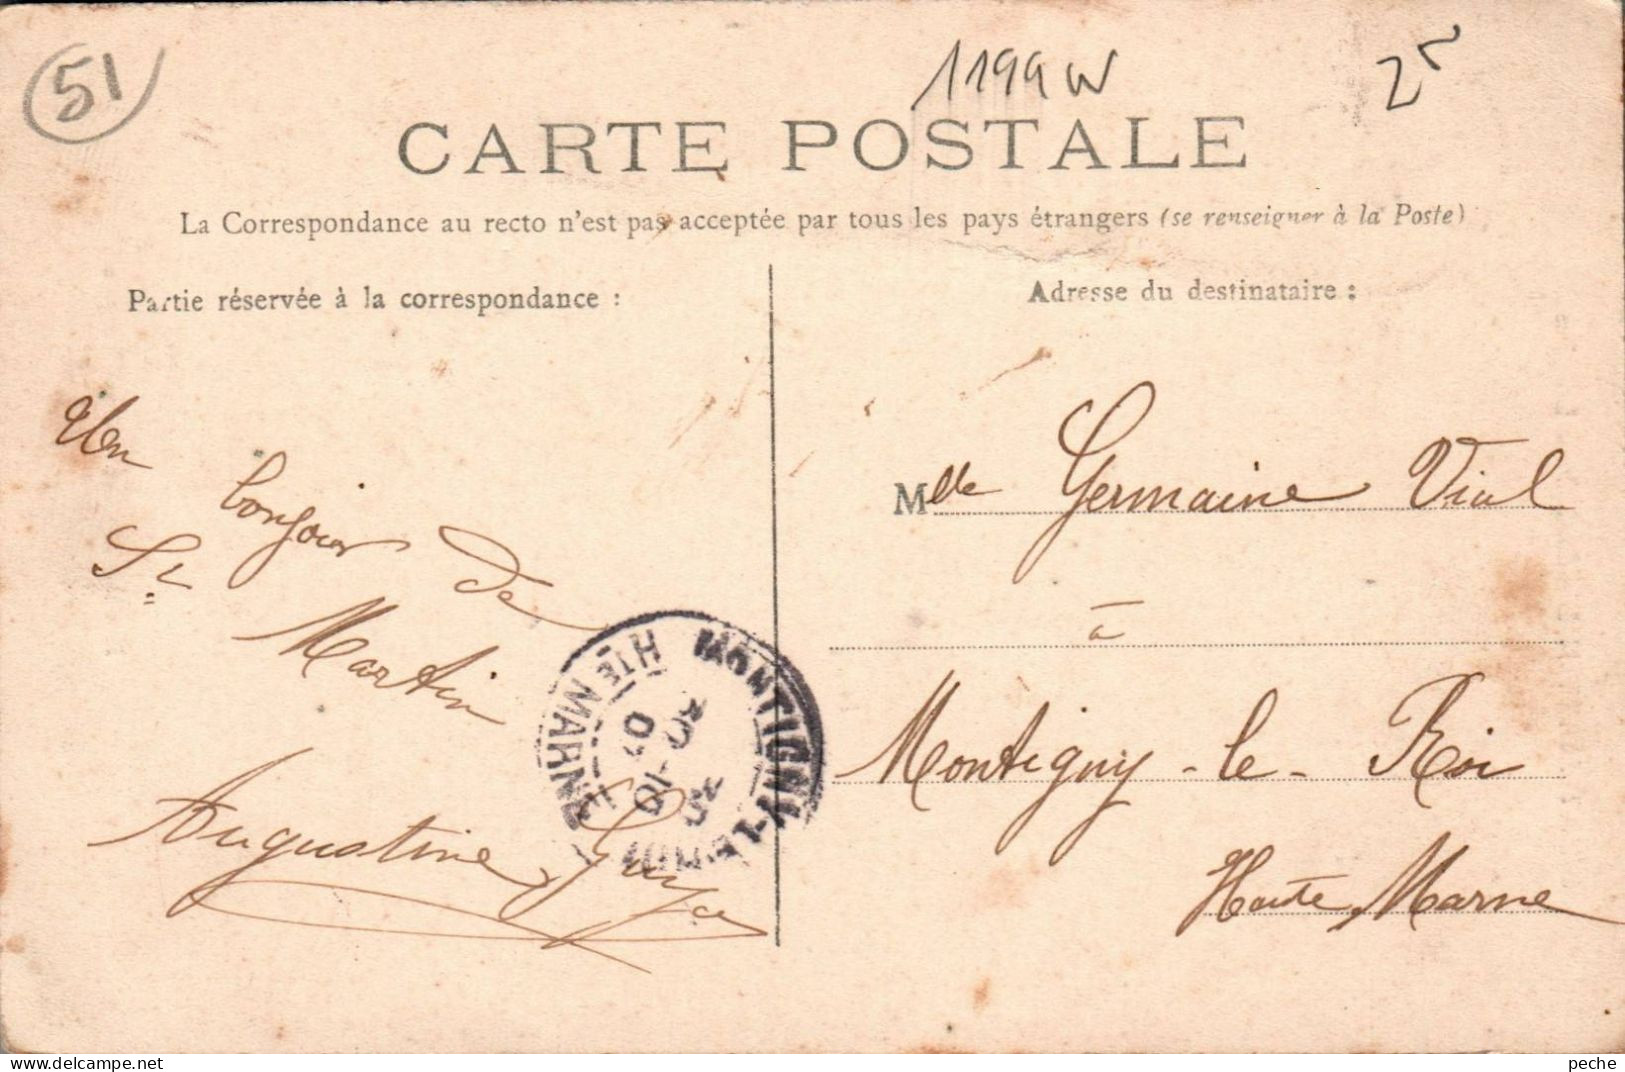 51
1199W
CARTE POSTALE
La Correspondance au recto n'est pas acceptée par tous les pays étrangers (se renseigner à la Poste)
Partie réservée à la correspondance :
Un bonjour de
St Martin
Augustine
Adresse du destinataire :
Mlle Germaine Vial
à
Montigny-le-Roi
Haute Marne
MONTIGNY-LE-ROI
HTE MARNE
delcampe.net
peche